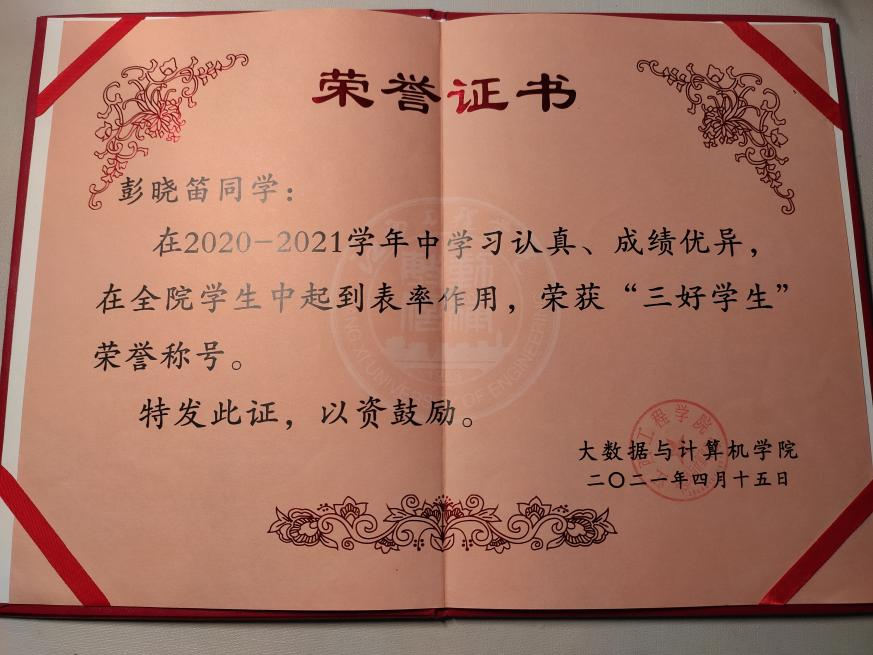 荣誉证书
彭晓笛同学：
在2020-2021学年中学习认真、成绩优异，
在全院学生中起到表率作用，荣获“三好学生”
荣誉称号。
特发此证，以资鼓励。
大数据与计算机学院
二〇二一年四月十五日
工程学院
UNIVERSITY OF ENGINEERING